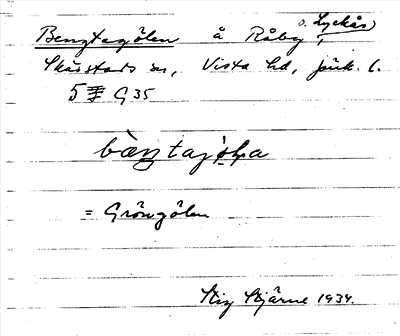 Bengtagölen å Råby, o. Lyckås
Skärstads sn, Vista hd, Jönk. l.
5 G 35
= Gröngölen
Stig Stjärne 1934.